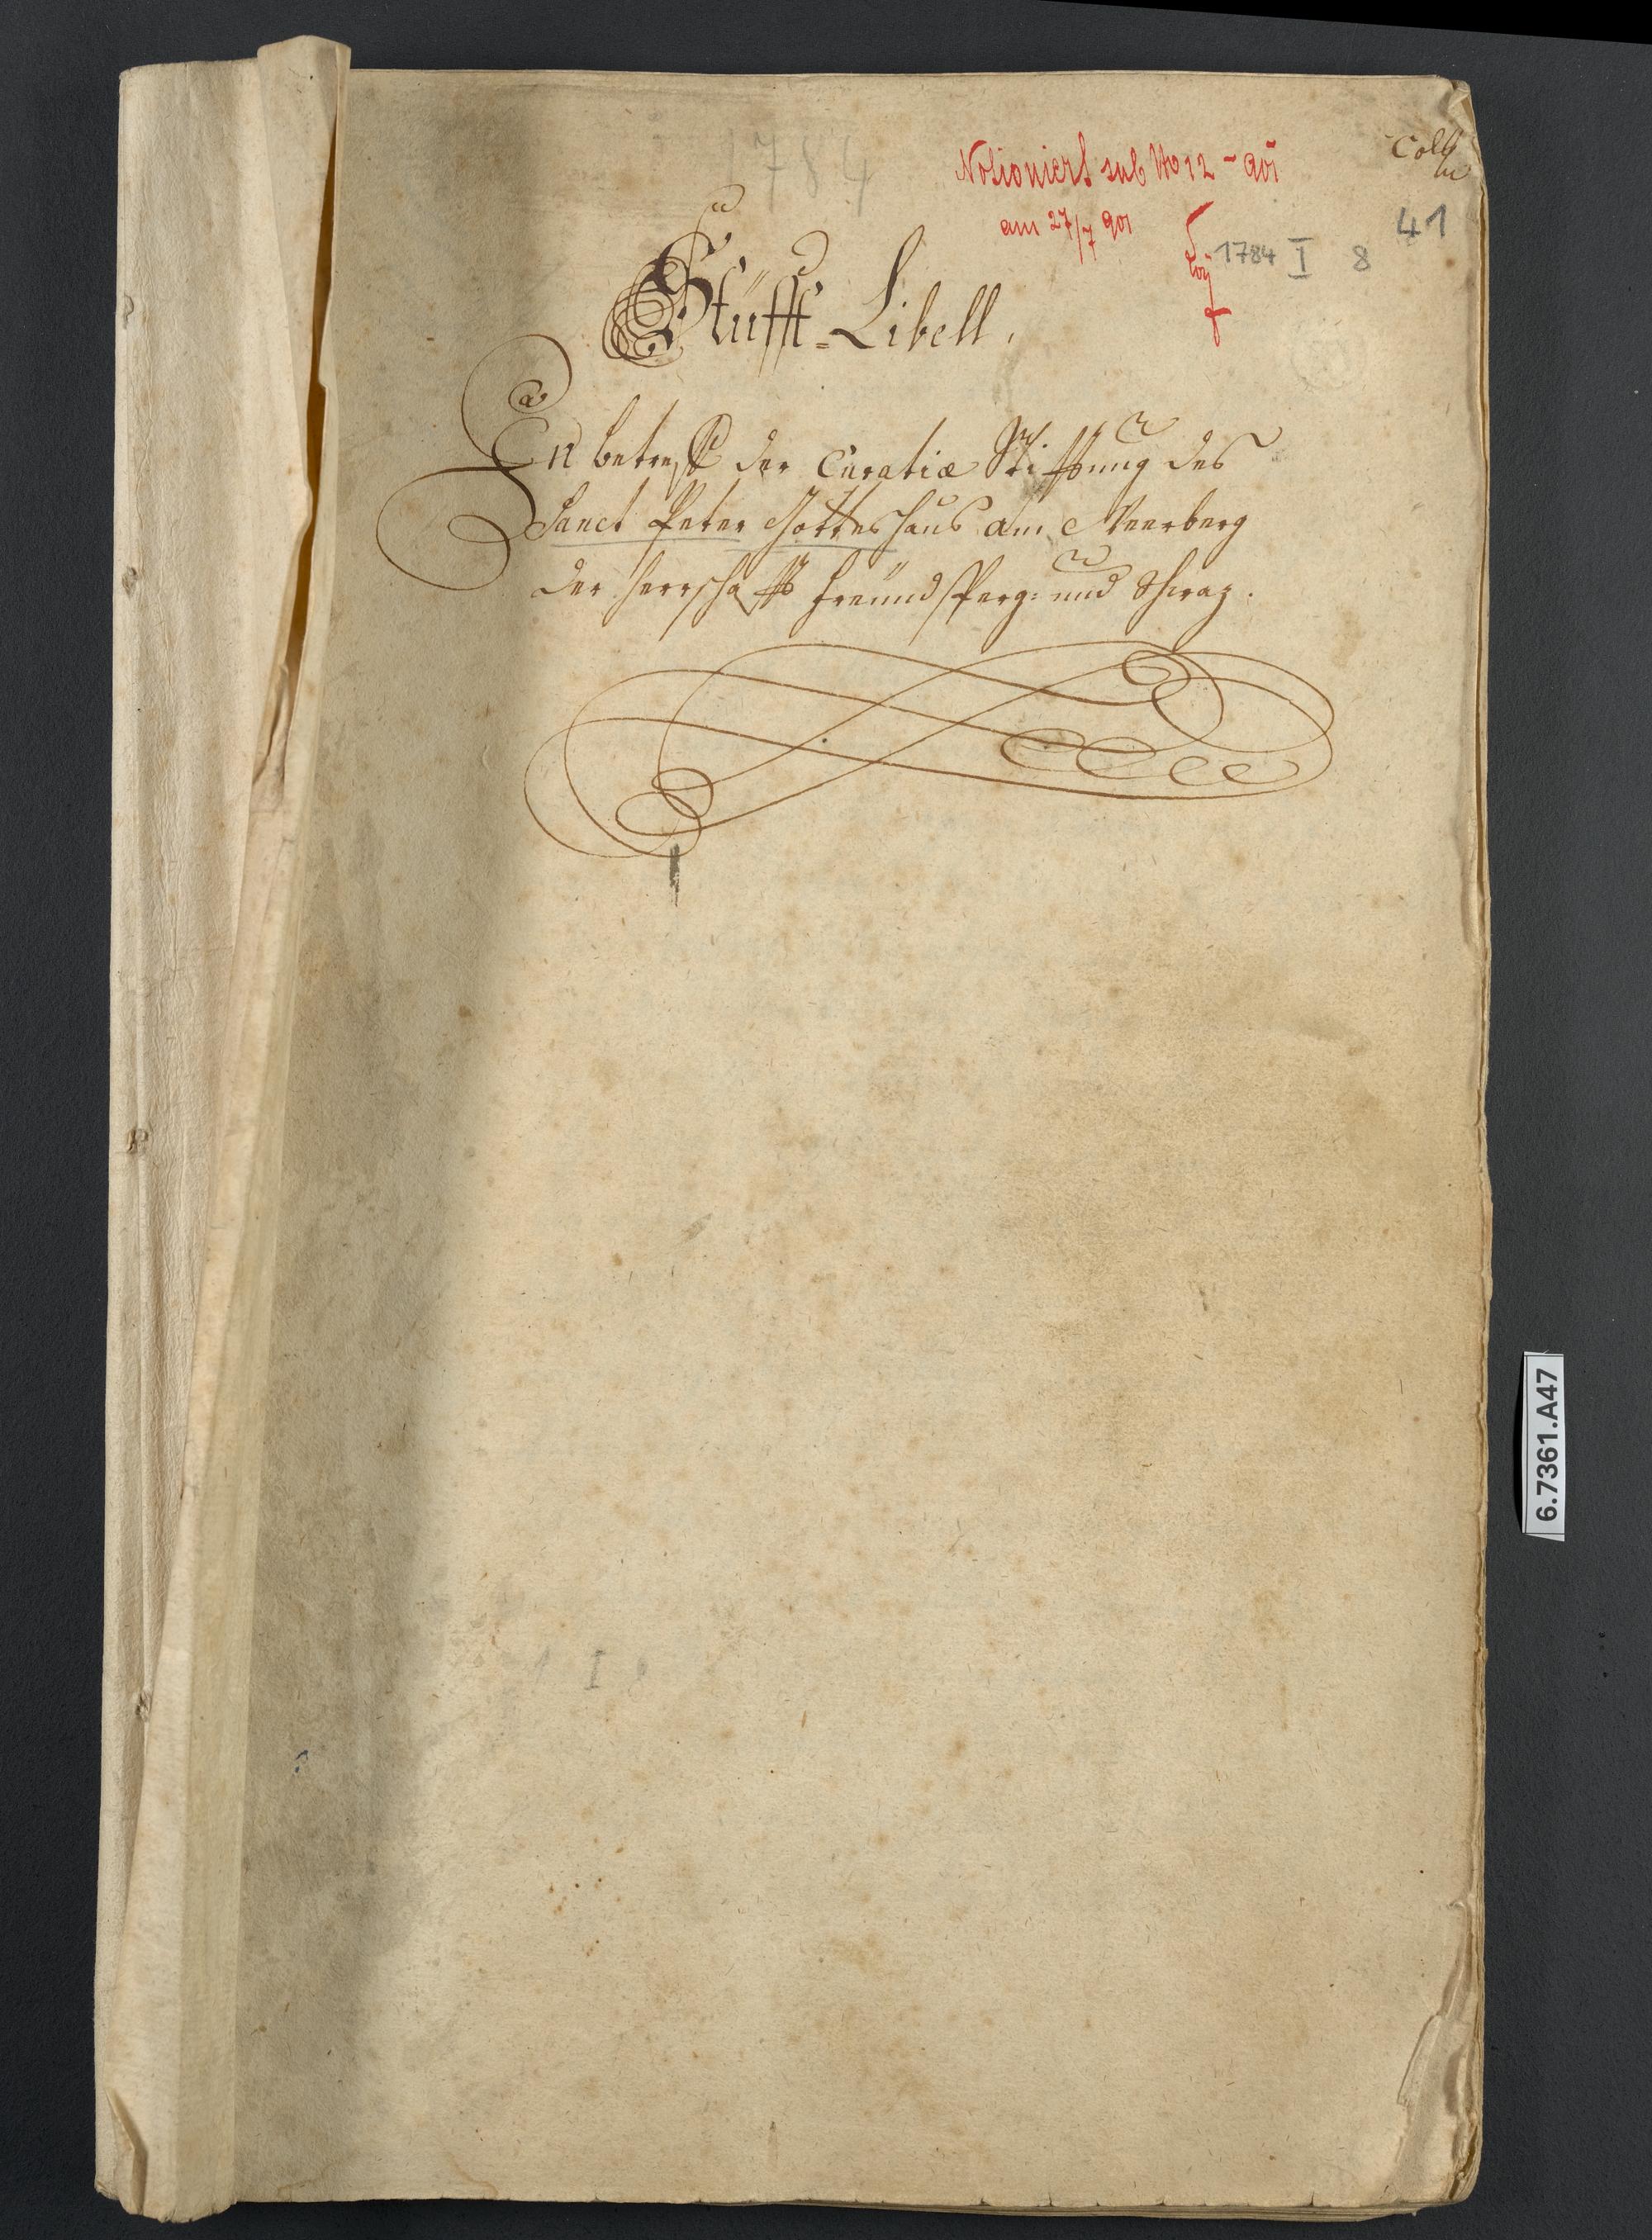 1784
Notioniert sub No 12 - 901
am 27/7 901
Coll
41
1784 I 8
Stüfft=Libell.
In betreff der Curatiæ Stifftung des
Sanct Peter Gotteshaus am Weerberg
der Herrschafft Freündsperg= und Schwaz.
6.7361.A47